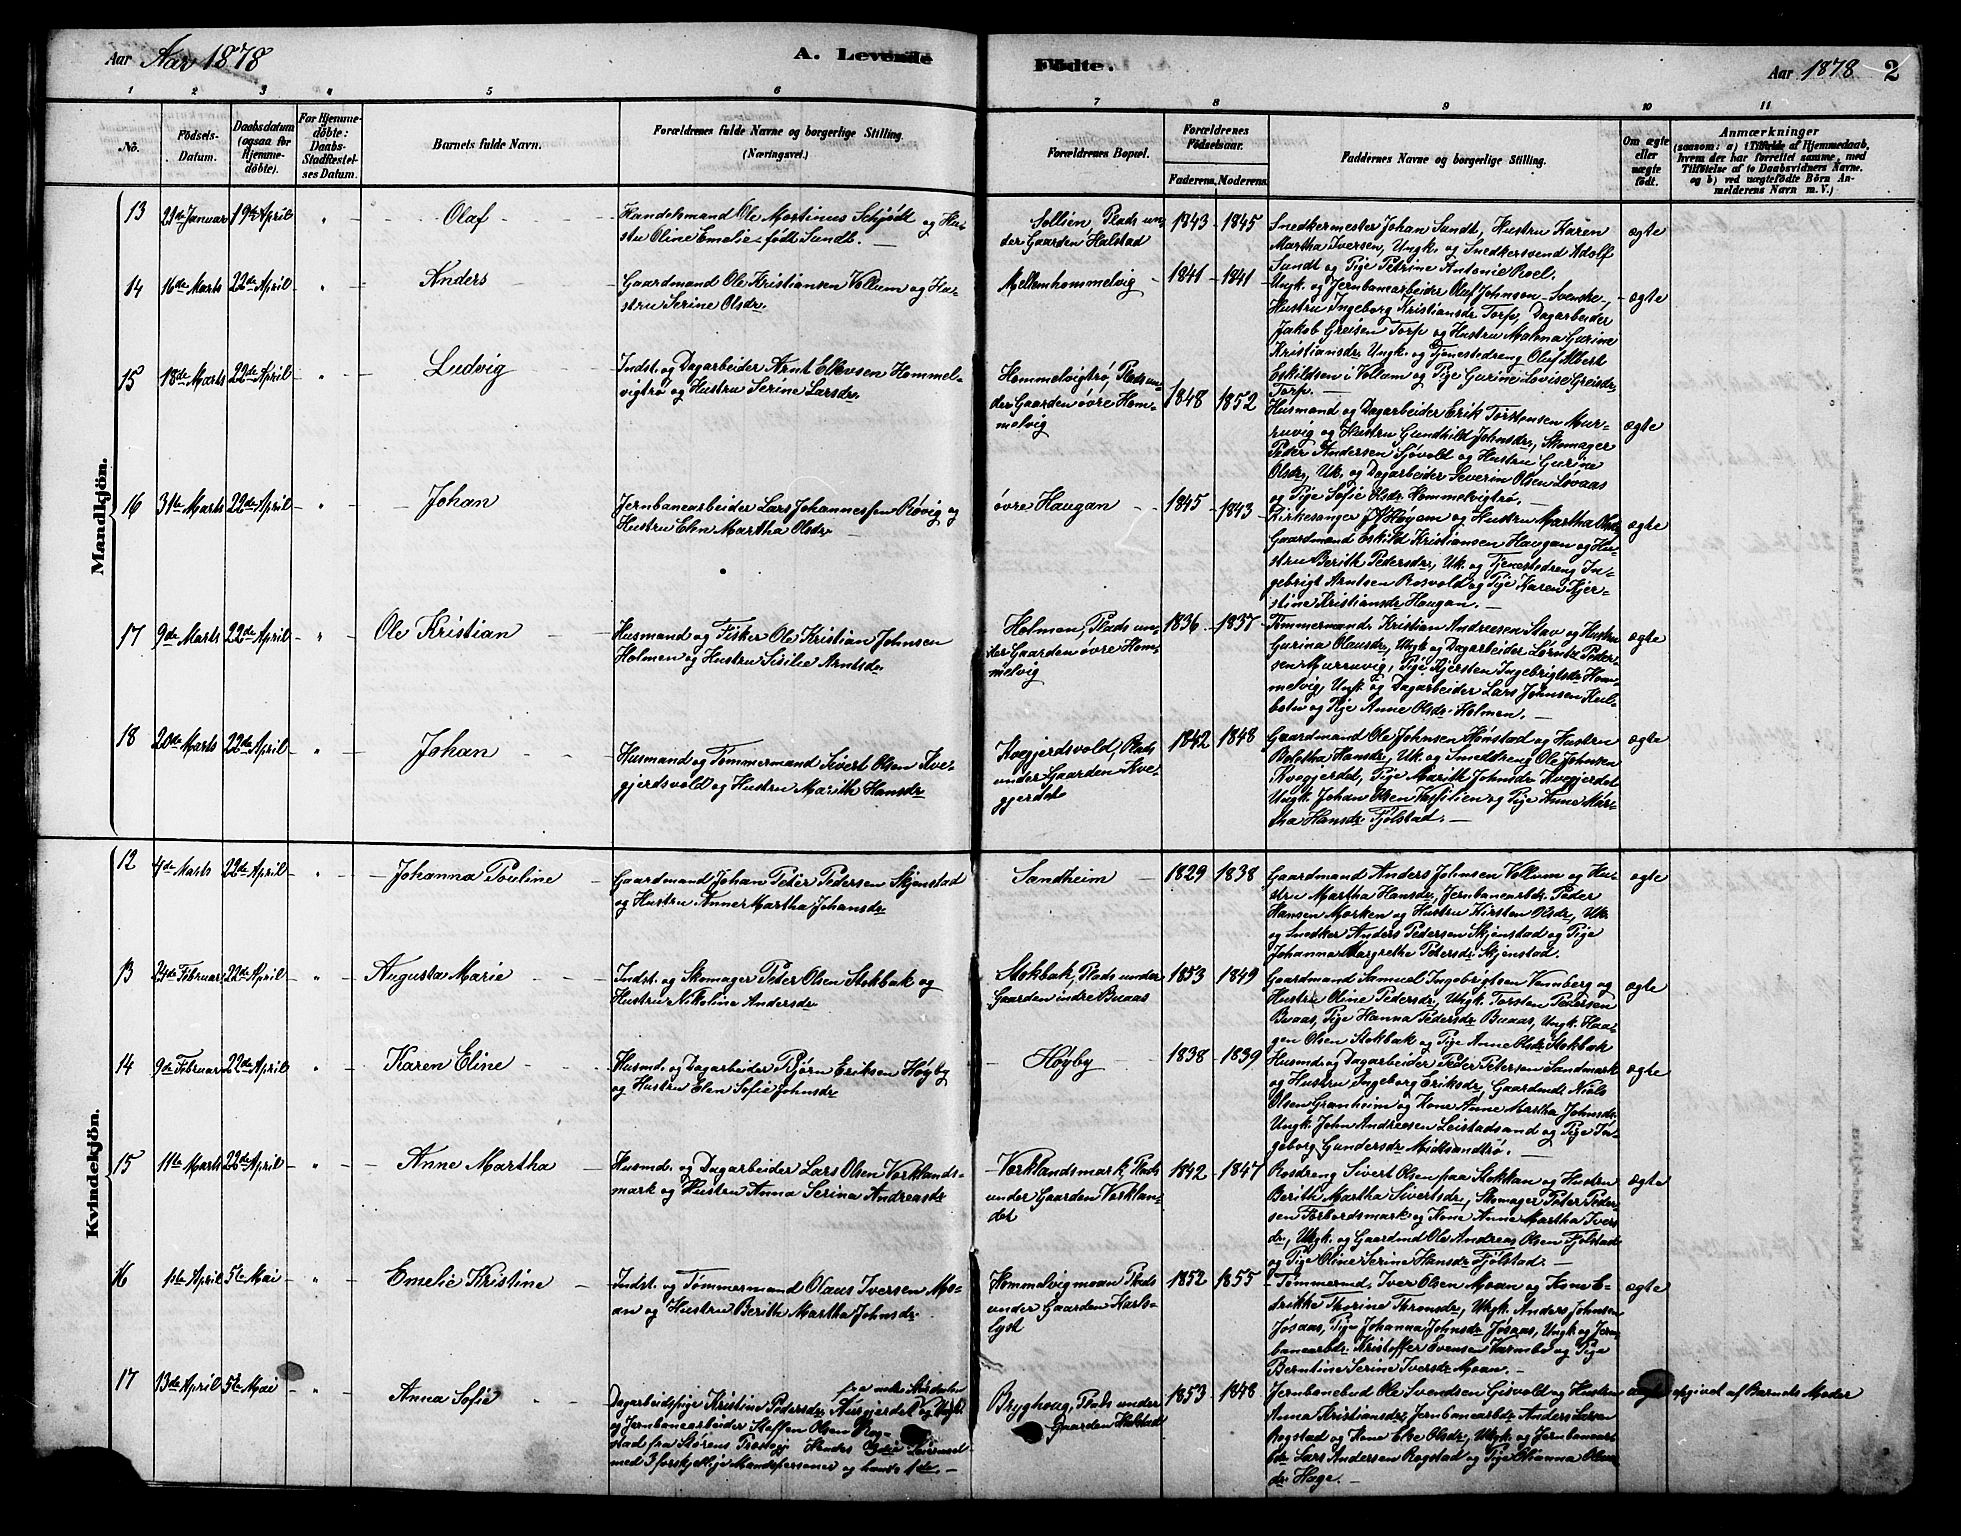 Aar Aar 1878
A. Levende Födte.
Aar 1878 2
1 2 3 4 5 6 7 8 9 10 11
No.
Födsels-
Datum.
Daabsdatum
(ogsaa for
Hjemme-
döbte).
For Hjemme-
döbte:
Daabs-
StadRestel-
ses Datum.
Barnets fulde Navn.
Forældrenes fulde Navne og borgerlige Stilling.
(Næringsvei.)
Forældrenes Bopæl.
Forældrenes
Födselsaar.
Faderens. Moderens.
Faddernes Navne og borgerlige Stilling.
Om ægte
eller
uægte
födt.
Anmærkninger
(saasom: a) i Tilfælde af Hjemmedaab,
hvem der har forrettet samme, med
Tilföielse af to Daabsvidners Navne,
og b) ved uægtefödte Börn An-
melderens Navn m. V.)
Mandkjön.
13 23de Januar 19de April " Olaf
Handelsmand Ole Martinus Schjödt og Hu-
stru Oline Emelie født Sundt.
Sollien, Plads un-
der Gaarden Halstad
1843 1845
Snedkermester Johan Sundt, Hustru Karen
Martha Iversen, Ungk. og Snedkersvend Adolf
Sundt og Pige Petrine Antonie Roel.
ægte
14 16de Marts 22de April " Anders
Gaardmand Ole Kristiansen Vollum og Hu-
stru Serine Olsdr.
Mellemhommelvig
1841 1841
Ungk. og Jernbanearbeider Oluf Johnsen Svenske,
Hustru Ingeborg Kristiansdr Torp, Dagarbeider
Jakob Greisen Torp og Hustru Malena Gurine
Kristiansdr, Ungk. og Tjenestedreng Oluf Albert
Eskildsen i Vollum og Pige Gurine Lovise Greisdr
Torp.
ægte
15 18de Marts 22de April " Ludvig
Indst. og Dagarbeider Arnt Ellevsen Hommel-
vigtrø og Hustru Serine Larsdr.
Hommelvigtrø, Plads un-
der Gaarden øvre Hom-
melvig
1848 1852
Husmand og Dagarbeider Erik Torstensen Mur-
ruvig og Hustru Gundhild Johnsdr, Skomager
Peder Andersen Sjøvold og Hustru Gurine
Olsdr, Uk. og Dagarbeider Severin Olsen Lovaas
og Pige Sofie Olsdr Hommelvigtrø.
ægte
16 31te Marts 22de April " Johan
Jernbanearbeider Lars Johannessen Røvig og
Hustru Elen Martha Olsdr
øvre Haugan
1845 1843
Kirkesanger Høyem og Hustru Martha Olsdr,
Gaardmand Eskild Kristiansen Haugan og Hu-
stru Berith Pedersdr, Uk. og Tjenestedreng In-
gebrigt Arntsen Rosvold og Pige Karen Kjer-
stine Kristiansdr Haugan.
ægte
17 9de Marts 22de April " Ole Kristian
Husmand og Fisker Ole Kristian Johnsen
Holmen og Hustru Sisilie Arntsdr
Holmen, Plads un-
der Gaarden øvre Hom-
melvig
1836 1837
Tømmermand Kristian Andreesen Stav og Hustru
Gurina Olausdr, Ungk. og Dagarbeider Lorntz Peder-
sen Murruvig, Pige Kjersten Ingebrigtsdr Hom-
melvig, Ungk. og Dagarbeider Lars Johnsen Kul-
bolv og Pige Anne Olsdr Holmen.
ægte
18 20de Marts 22de April " Johan
Husmand og Tømmermand Sivert Olsen Kve-
gjerdsvold og Hustru Marith Hansdr
Kvegjerdsvold, Plads
under Gaarden Kve-
gjerdet
1842 1848
Gaardmand Ole Johnsen Hønstad og Hustru
Bolotha Hansdr, Uk. og Smeddreng Ole Johnsen
Kvegjerdet, Pige Marith Johnsdr Kvegjerdet
Ungk. Johan Olsen Vessilien og Pige Anne Mar-
tha Hansdr Fjølstad.
ægte
Kvindekjön.
12 4de Marts 22de April " Johanna Pouline
Gaardmand Johan Peter Pedersen Skjenstad
og Hustru Anne Martha Johansdr
Sandheim
1829 1838
Gaardmand Anders Johnsen Vollum og Hu-
stru Martha Hansdr, Jernbanearbdr. Peder
Hansen Morken og Hustru Kirsten Olsdr, Uk.
og Snedker Anders Pedersen Skjenstad og Pige
Johanna Margrethe Petersdr Skjenstad.
ægte
13 24de Februar 22de April " Augusta Marie
Indst. og Skomager Peter Olsen Stokbak og
Hustru Nikoline Andersdr
Stokbak, Plads under
Gaarden indre Buaas
1853 1849
Gaardmand Samuel Ingebrigtsen Vennberg og
Hustru Oline Pedersdr, Ungk. Torsten Pedersen
Buaas, Pige Hanna Pedersdr Buaas, Ungk. Haa-
gen Olsen Stokbak og Pige Anne Olsdr Stokbak
ægte
14 9de Februar 22de April " Karen Eline
Husmd. og Dagarbeider Bjørn Eriksen Høyby
og Hustru Elen Sofie Johnsdr
Høyby
1838 1839
Husmd. og Dagarbeider Peder Petersen Sandmark
og Hustru Ingeborg Eriksdr, Gaardmd. Niels
Olsen Granheim og Kone Anne Martha Johnsdr.
Ungk. John Andreesen Leistadsand og Pige In-
geborg Gundersdr Midtsandtrø.
ægte
15 11te Marts 22de April " Anne Martha
Husmd. og Dagarbeider Lars Olsen Verklands-
mark og Hustru Anna Serina Andreasdr
Verklandsmark, Plads
under Gaarden Verklan-
det
1842 1847
Rosdreng Sivert Olsen paa Stokkan og Hustru
Berith Martha Sivertsdr, Skomager Peter Peder-
sen Forbordsmark og Kone Anne Martha Ivers-
dr, Ungk. og Gaardmd Ole Andreas Olsen Fjølstad
og Pige Oline Serine Hansdr Fjølstad.
ægte
16 1ste April 5te Mai " Emelie Kristine
Indst. og Tømmermand Olaus Iversen Mo-
an og Hustru Berith Martha Johnsdr
Hommelvigmoan, Plads
under Gaarden Karls-
lyst
1852 1855
Tømmermd. Iver Olsen Moan og Kone E-
drikke Thorine Thronsdr, Ungk. Anders Johnsen
Jøsaas, Pige Johanna Johnsdr Jøsaas, Ungk. og Jern-
banearbdr. Kristoffer Evensen Varmbo og Pige
Berntine Serine Iversdr Moan.
ægte
17 13de April 5te Mai " Anna Sofie
Dagarbeidspige Kristine Pedersdr Aasgjerdet og Ungk.
og Jernbanearbeider Steffen Olsen Rog-
stad fra Størens Prestegj. Hendes 3die Leiermaal
med 3 forskjellige Mandspersoner og hans 1ste.
Bryghoug, Plads under
Gaarden Halstad
1853 1848
Jernbanebud Ole Svendsen Gisvold og Hustru
Anna Kristiansdr, Jernbanearbdr Anders Larsen
Rogstad og Kone Eke Olsdr, Ungk. og Jernbanearb-
dr. Lars Andersen Rogstad og Pige Ohanna Olaus-
dr Hage.
uægte
opgivet af Barnets Moder